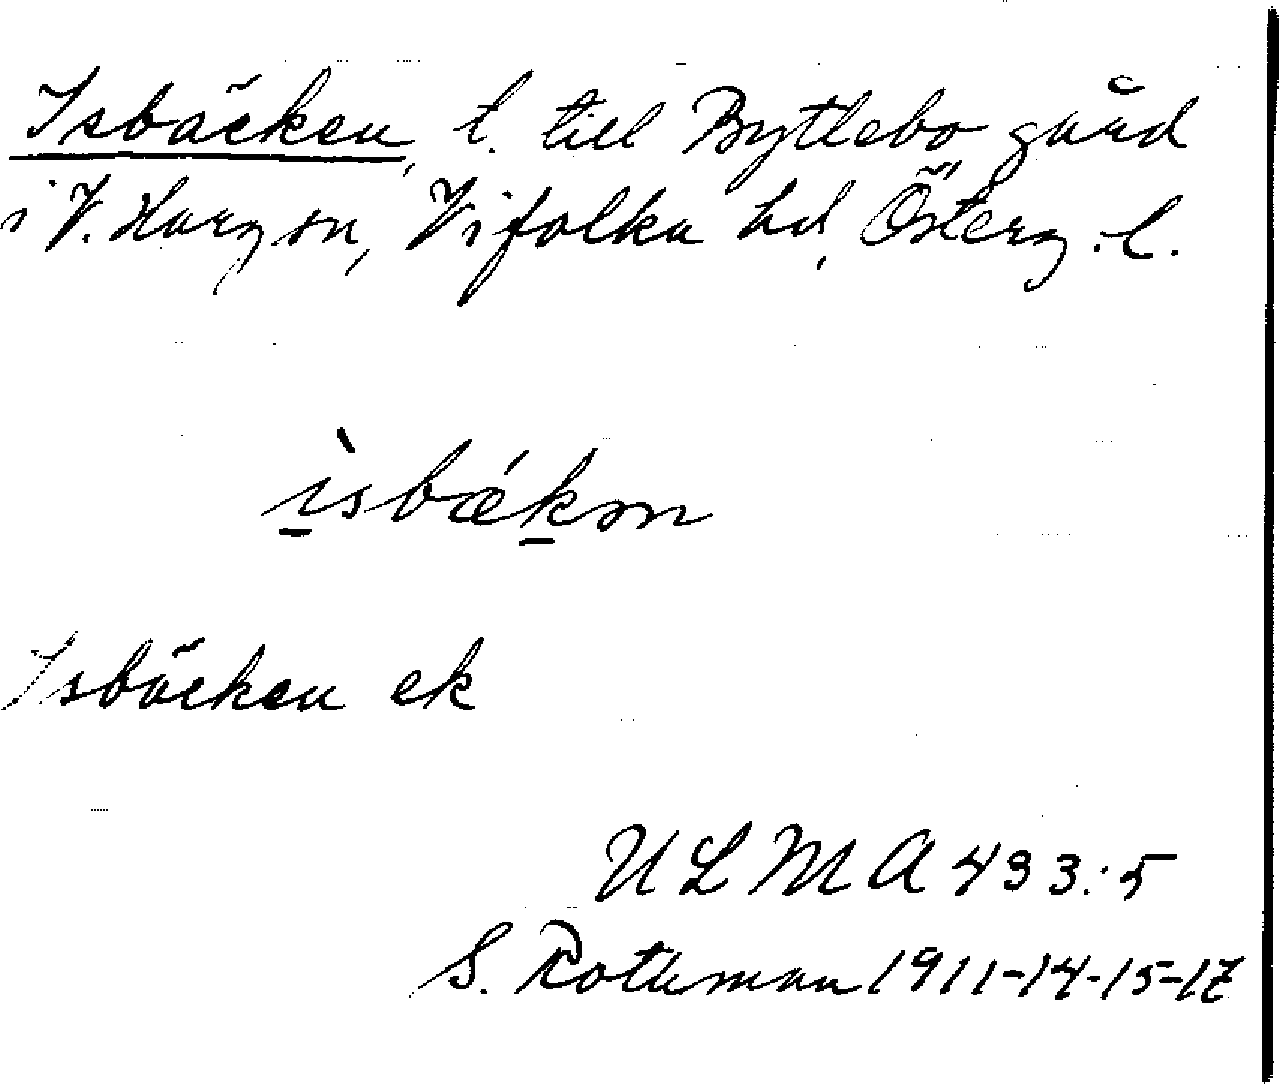 Isbäcken, l. till Bytlebo gård
i V. Harg sn, Vifolka hd, Österg. l.
ìsbǽkən
Isbäcken ek
ULMA 493:5
S. Rothman 1911-14-15-17